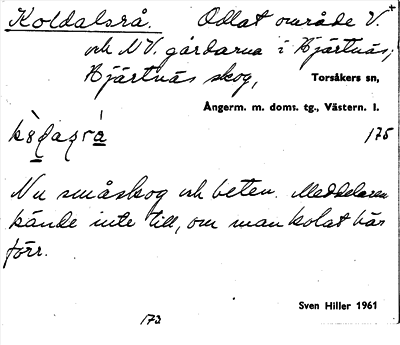 Koldalsrå. Odlat område V.
och NV. gårdarna i Hjärtnäs;
Hjärtnäs skog, Torsåkers sn,
Ångerm. m. doms. tg., Västern. l.
175
Nu småskog och beten. Meddelaren
kände inte till, om man kolat här
förr.
Sven Hiller 1961
173